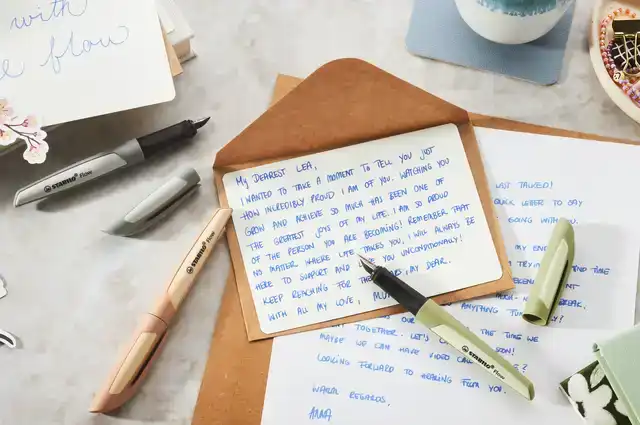 with
flow
STABILO flow
STABILO flow
My DEAREST LEA,
I WANTED TO TAKE A MOMENT TO TELL YOU JUST
HOW INCREDIBLY PROUD I AM OF YOU. WATCHING YOU
GROW AND ACHIEVE SO MUCH HAS BEEN ONE OF
THE GREATEST JOYS OF MY LIFE. I AM SO PROUD
OF THE PERSON YOU ARE BECOMING! REMEMBER THAT
NO MATTER WHERE LIFE TAKES YOU, I WILL ALWAYS BE
HERE TO SUPPORT AND YOU UNCONDITIONALLY!
KEEP REACHING FOR THE , MY DEAR.
WITH ALL MY LOVE,
LAST TALKED!
QUICK LETTER TO SAY
GOING WITH YOU.
MY
AND TIME
ANYTHING
OUR THE TIME WE
TOGETHER. LET'S
MAYBE WE CAN HAVE VIDEO CALL
LOOKING FORWARD TO HEARING FROM YOU.
WARM REGARDS,
ANNA
STABILO flow